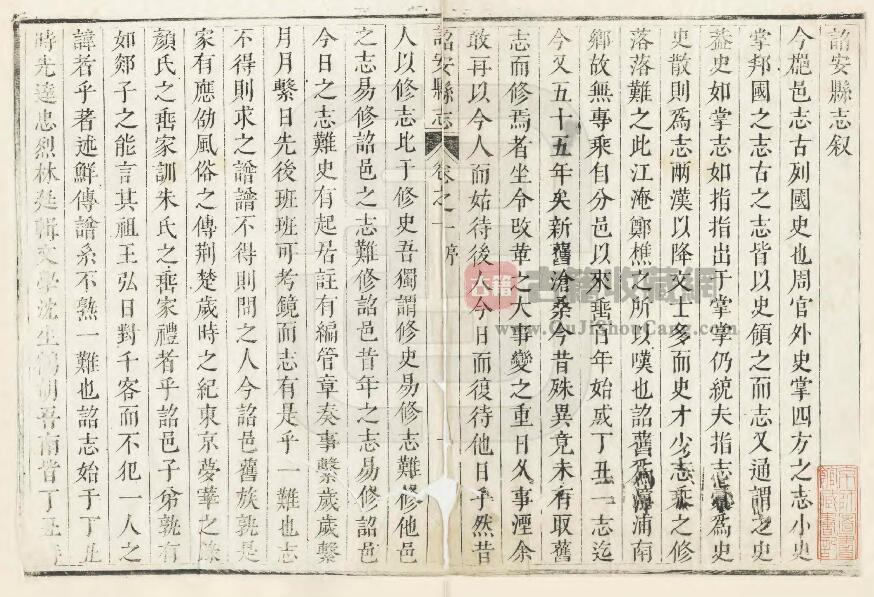 詔安縣志叙
今郡邑志古列國史也周官外史掌四方之志小史
掌邦國之志古之志皆以史領之而志又通謂之史
葢史如掌志如指指出于掌掌仍統夫指志為史
史散則為志兩漢以降文士多而史才少志乘之修
落落難之此江淹鄭樵之所以嘆也詔舊為漳浦南
鄉故無專乘自分邑以來垂百年始成丁丑一志迄
今又五十五年矣新舊滄桑今昔殊異竟未有取舊
志而修焉者坐令攺革之大事變之重日久事湮余
敢再以今人而姑待後人今日而復待他日乎然昔
詔安縣志 卷之一 序 一
人以修志比于修史吾獨謂修史易修志難修他邑
之志易修詔邑之志難修詔邑昔年之志易修詔邑
今日之志難史有起居註有編管章奏事繫歲歲繫
月月繫日先後班班可考鏡而志有是乎一難也志
不得則求之譜譜不得則問之人今詔邑舊族孰是
家有應劭風俗之傳荆楚歲時之紀東京夢華之錄
顏氏之垂家訓朱氏之垂家禮者乎詔邑子弟孰有
如郯子之能言其祖王弘日對千客而不犯一人之
諱者乎著述鮮傳譜系不熟一難也詔志始于丁丑
時先達忠烈林 輯文學沈 胡 南皆丁丑
古籍收藏網
www.GuJiShouCang.com